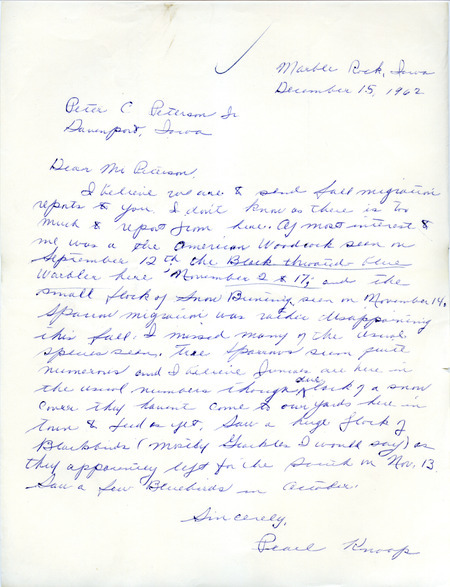 Marble Rock, Iowa
December 15, 1962
Peter C Peterson Jr
Davenport, Iowa
Dear Mr Peterson,
I believe we are to send fall migration
reports to you. I don't know as there is too
much to report from here. Of most interest to
me was a the American Woodcock seen on
September 12th the Black throated blue
Warbler here November 2 & 17; and the
small flock of Snow Bunting seen on November 14.
Sparrow migration was rather disappointing
this fall. I missed many of the usual
species seen. Tree Sparrows seem quite
numerous and I believe Juncos are here in
the usual numbers though due lack of a snow
cover they havent come to our yards here in
town to feed as yet. Saw a huge flock of
Blackbirds (mostly Grackles I would say) as
they apparently left for the south on Nov. 13
Saw a few Bluebirds in October.
Sincerely,
Pearl Knoop